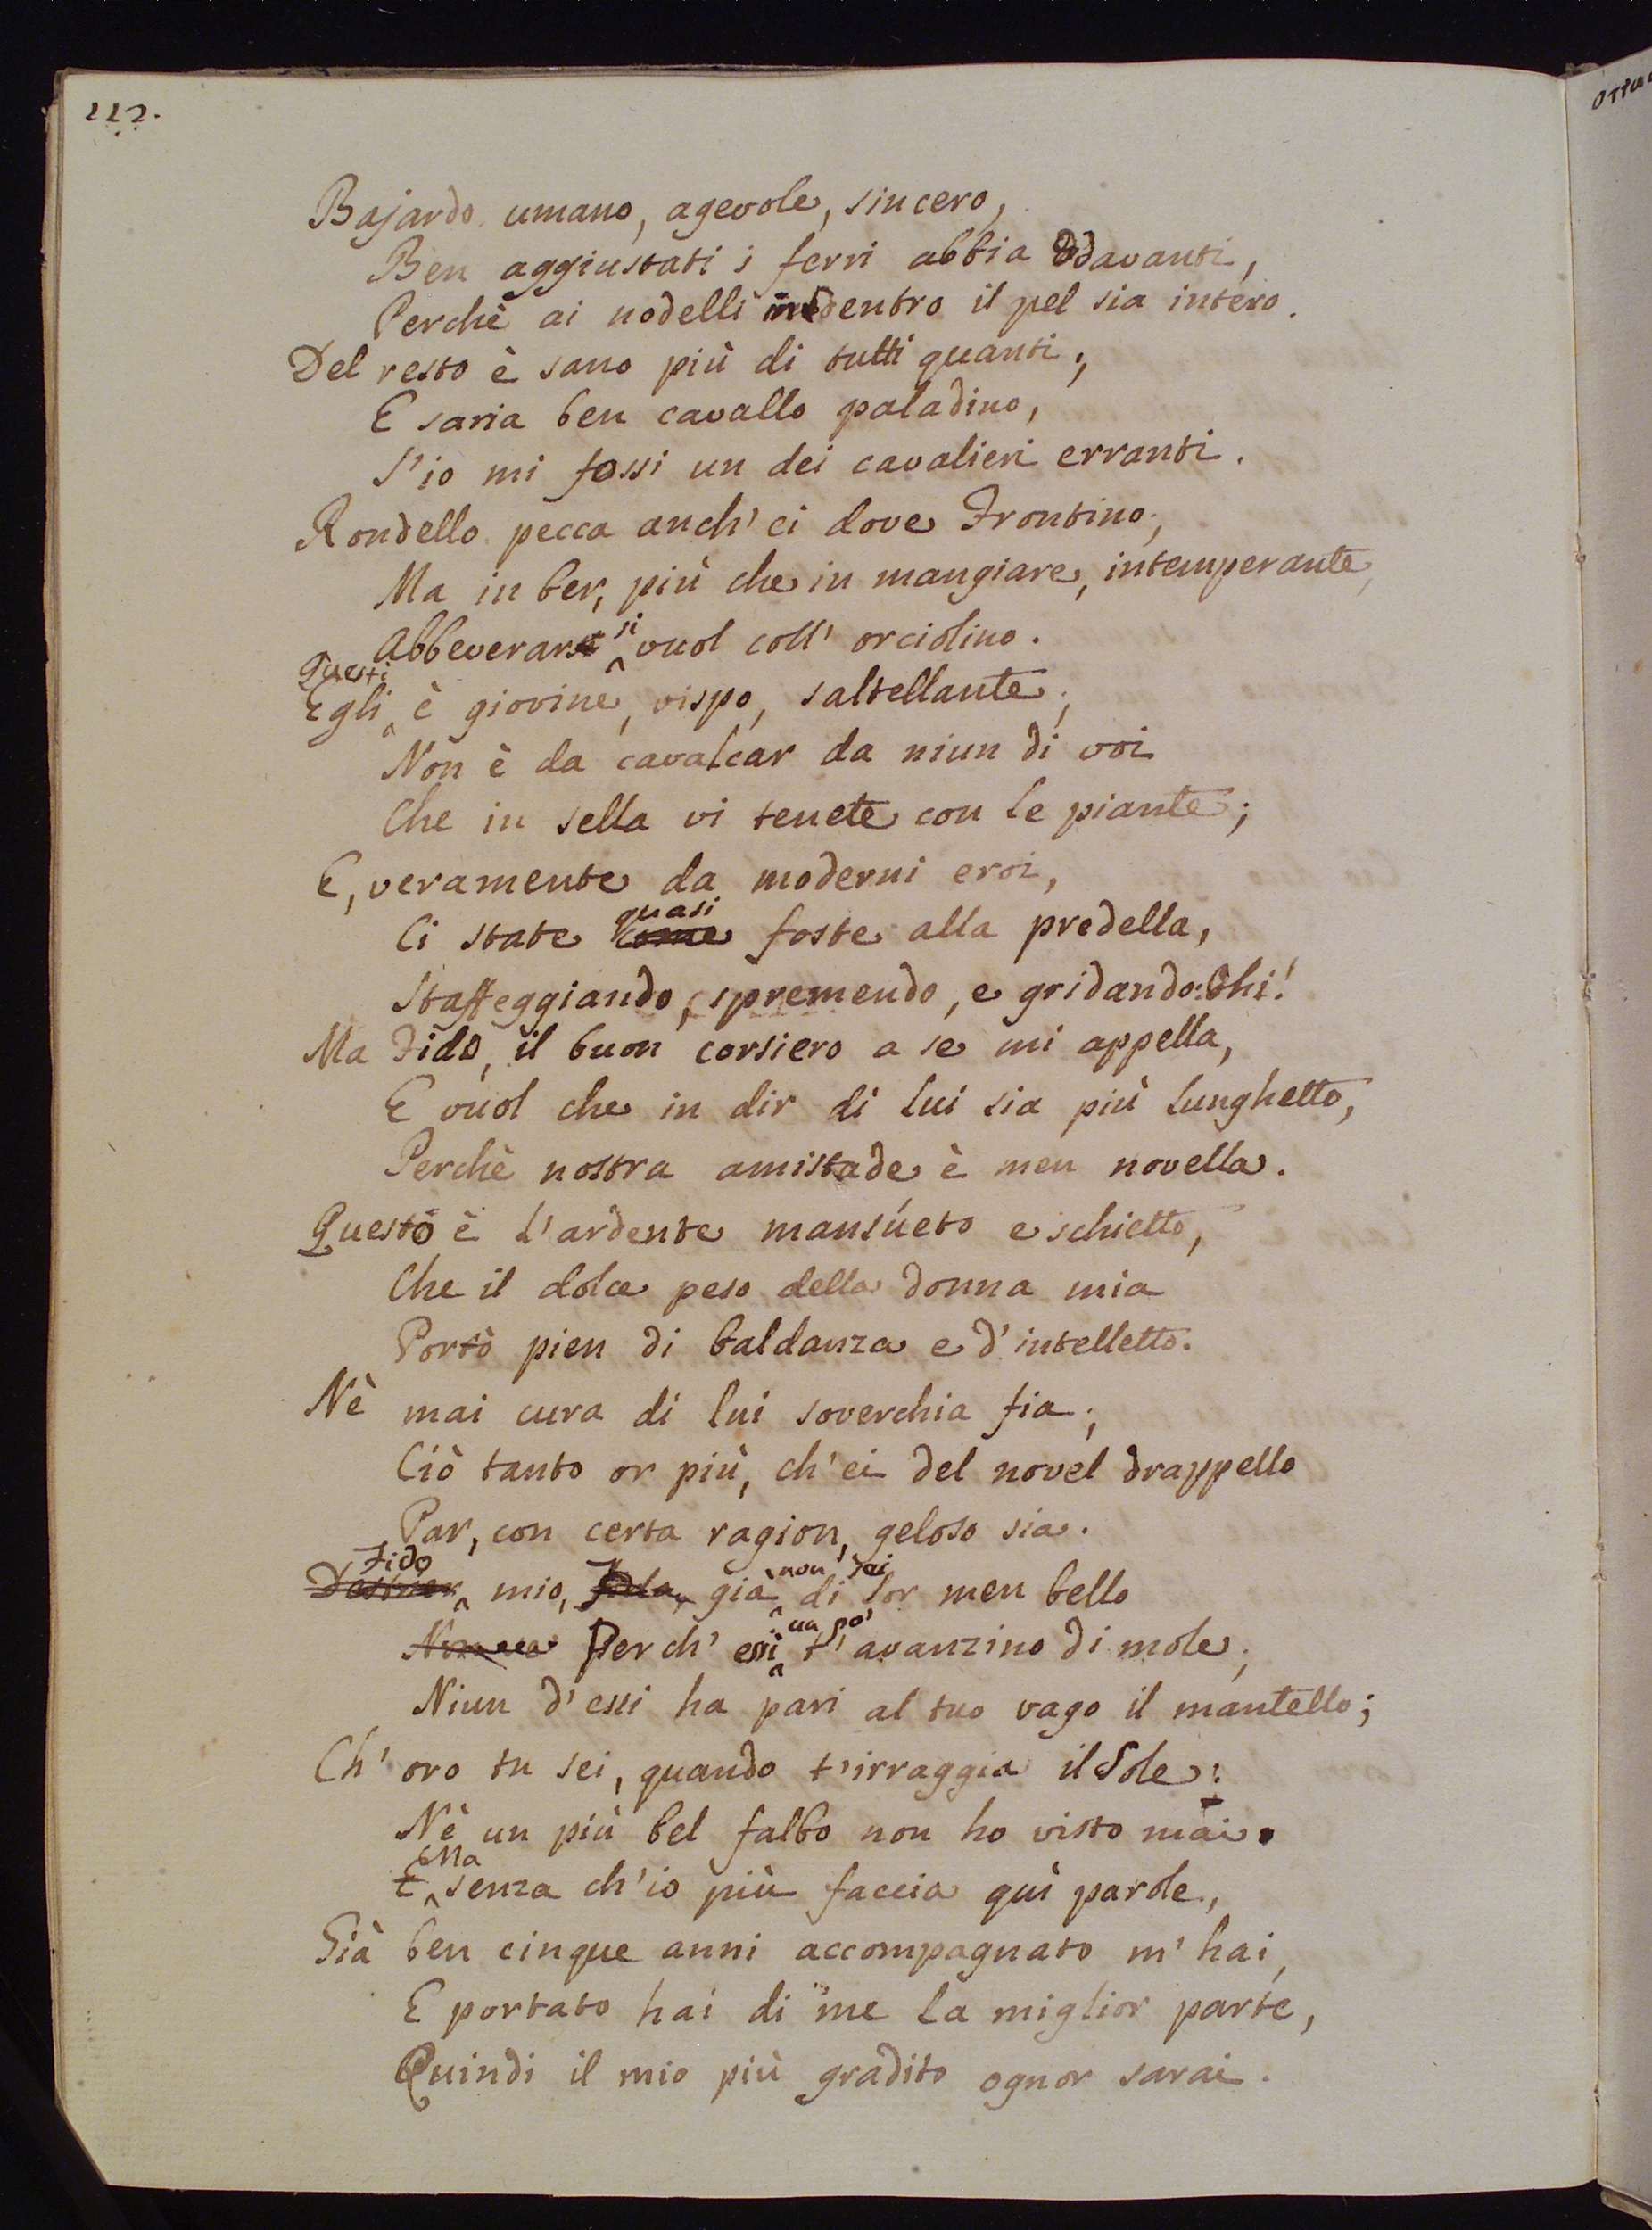 112.
Bajardo umano, agevole, sincero,
Ben aggiustati i ferri abbia davanti,
Perchè ai nodelli indentro il pel sia intero.
Del resto è sano più di tutti quanti;
E saria ben cavallo paladino,
S'io mi fossi un dei cavalieri erranti.
Rondello pecca anch' ei dove Frontino;
Ma in ber, più che in mangiare, intemperante,
Abbeverar si vuol coll' orciolino.
Questi
Egli è giovine, vispo, saltellante;
Non è da cavalcar da niun di voi
Che in sella vi tenete con le piante;
E, veramente da moderni eroi,
quasi
Ci state Come foste alla predella,
Staffeggiando, spremendo, e gridando: Ohi!
Ma Fido, il buon corsiero a se mi appella,
E vuol che in dir di lui sia più lunghetto,
Perchè nostra amistade è men novella.
Questo è l'ardente mansueto e schietto,
Che il dolce peso della donna mia
Portò pien di baldanza e d'intelletto.
Nè mai cura di lui soverchia fia;
Ciò tanto or più, ch'ei del novel drappello
Par, con certa ragion, geloso sia.
Fido non sei
Destrier mio, già di lor men bello
un po'
Perch' essi t'avanzino di mole;
Niun d'essi ha pari al tuo vago il mantello;
Ch' oro tu sei, quando t'irraggia il Sole:
Nè un più bel falbo non ho visto mai.
Ma
E senza ch'io più faccia quì parole,
Già ben cinque anni accompagnato m' hai,
E portato hai di me la miglior parte,
Quindi il mio più gradito ognor sarai.